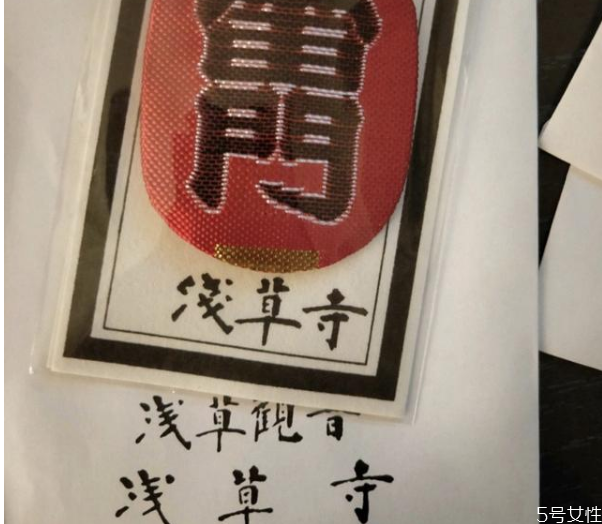 門
淺草寺
浅草観音
浅草寺
5号女性